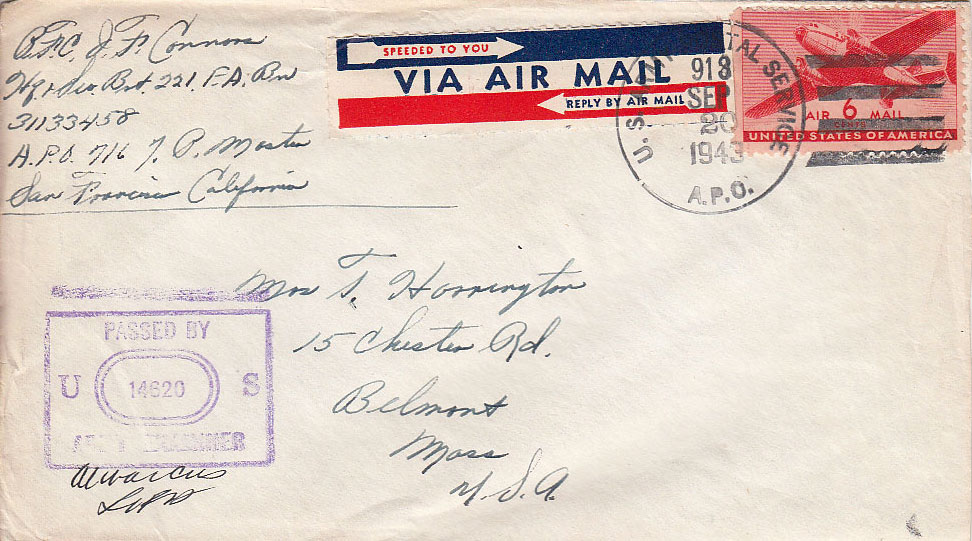 P.F.C. J. F. Connors
Hq. & Ser. Bat. 221. F.A. Bn
31133458
A.P.O. 716 % P. Master
San Francisco California
SPEEDED TO YOU
VIA AIR MAIL
REPLY BY AIR MAIL
U.S. POSTAL SERVICE
918
SEP
20
1943
A.P.O.
AIR 6 MAIL
CENTS
UNITED STATES OF AMERICA
Mrs T. Harrington
15 Chester Rd.
Belmont
Mass
U.S.A.
PASSED BY
U 14620 S
ARMY EXAMINER